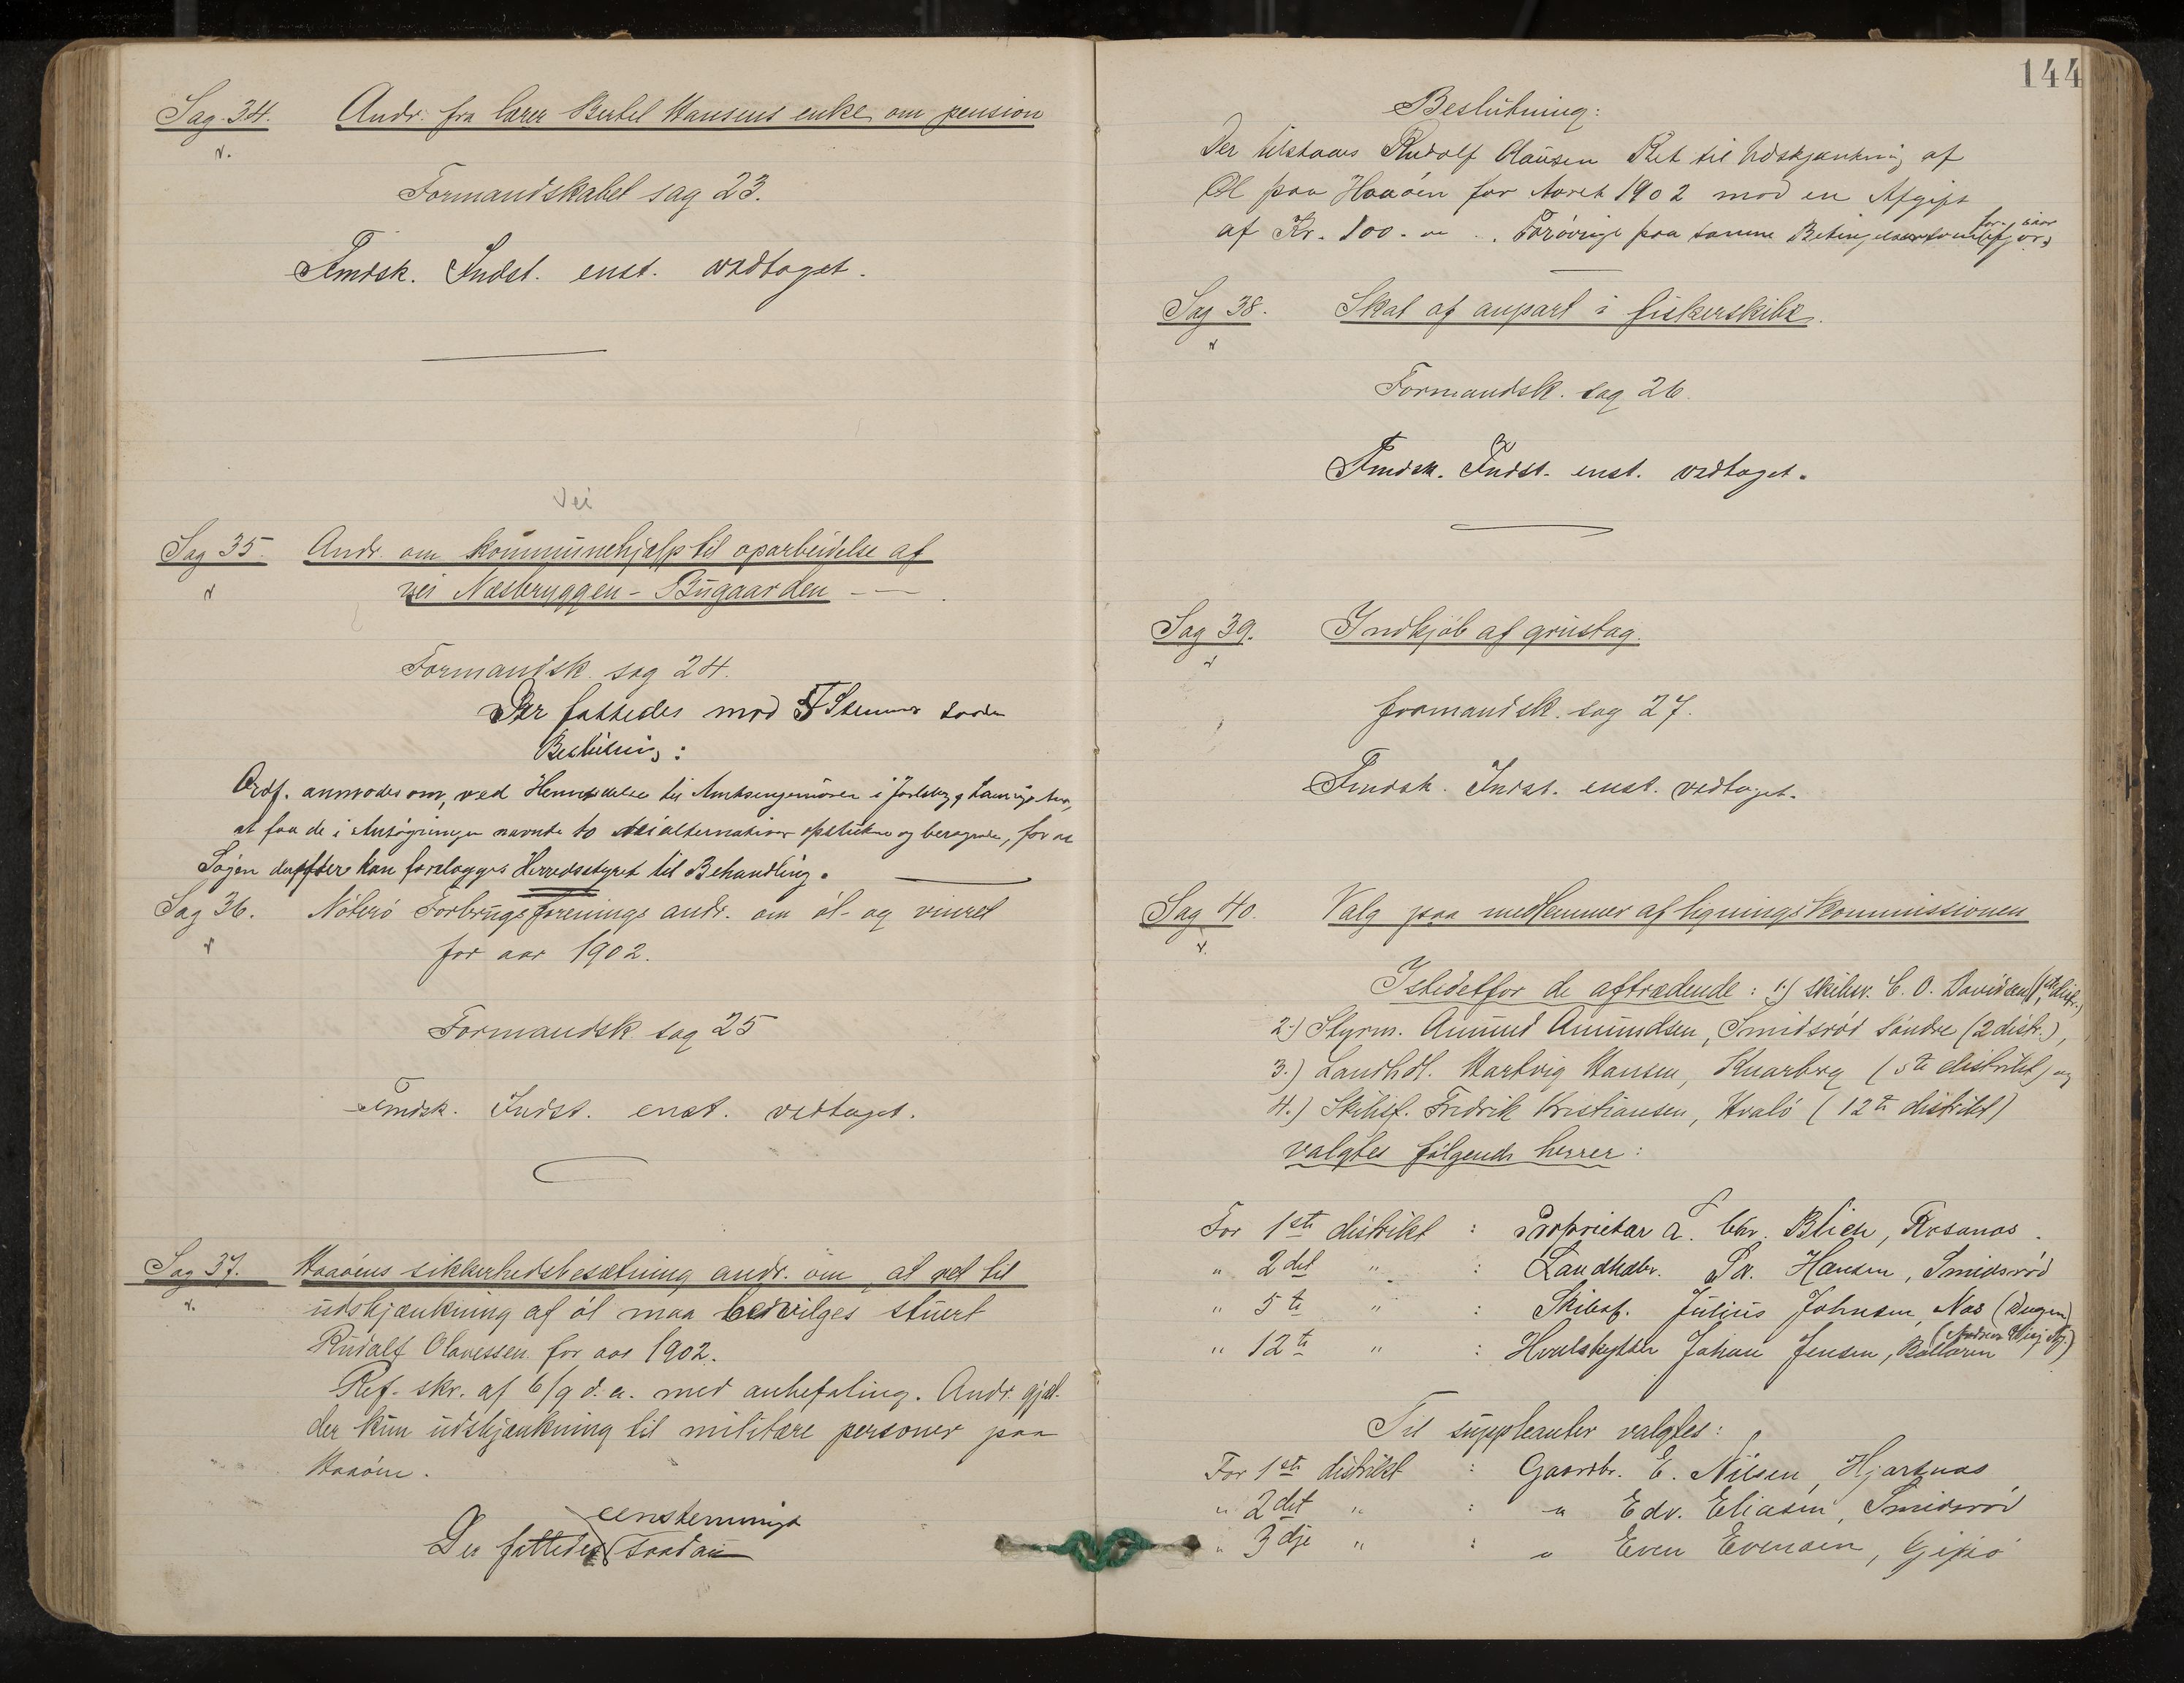 Sag 34. Andr. fra lærer Bertel Hansens enke om pension
Formandskabet sag 23.
Fmdsk. Indst. enst. vedtaget.
Vei
Sag 35. Andr. om kommunehjælp til oparbeidelse af
vei Næsbryggen - Bugaarden
Formandsk. sag 24.
Der fattedes mod Stemmer
Beslutning:
Ordf. anmodes om, ved Henvendelse til Amtsingeniøren i Jarlsberg og
at faa de i Ansøgningen nævnte to veialternativer og beregnede, for at
Sagen derefter kan forelægges Herredsstyret til Behandling.
Sag 36. Nøterø Forbrugsforenings andr. om øl- og vinret
for aar 1902.
Formandsk. sag 25
Fmdsk. Indst. enst. vedtaget.
Sag 37. Haaøens sikkerhedsbesætning andr. om at ret til
udskjænkning af øl maa bevilges stuert
Rudolf Olavessen for aar 1902.
Ref. skr. af 6/9 d. a. med anbefaling. Andr. gjæl-
der kun udskjænkning til militære personer paa
Haaøen.
eenstemmigt
Der fattedes saadan
144
Beslutning:
Der tilstaaes Rudolf Olausen Ret til Udskjænkning af
Øl paa Haaøen for Aaret 1902 mod en Afgift
af Kr. 100. Forøvrigt paa samme Betingelser som
Sag 38. Skat af anpart i fiskerskibe.
Formandsk. sag 26.
Fmdsk. Indst. enst. vedtaget.
Sag 39. Indkjøb af grustag.
formandsk. sag 27.
Fmdsk. Indst. enst. vedtaget.
Sag 40. Valg paa medlemmer af ligningskommissionen
Istedetfor de aftrædende: 1.) skibsr. C. O. Davidsen (1ste distr.)
2.) Styrm. Amund Amundsen, Smidsrød søndre (2 distr.),
3.) Landhdl. Hartvig Hansen, Knarberg (5te distrikt) og
4.) Skibsf. Fredrik Kristiansen, Hvalø (12te distrikt)
valgtes følgende herrer:
For 1ste distrikt : Proprietær Chr. Blich, Rosanæs.
" 2det " : Landhdler. Hansen, Smidsrød
" 5te " : Skibsf. Julius Johnsen, Næs
" 12te " : Hvalskytter Johan Jensen,
Til suppleanter valgtes:
For 1ste distrikt : Gaardbr. E. Nilsen, Hjertnæs
" 2det " : " Edv. Eliasen, Smidsrød
" 3dje " : " Even Evensen, Gipø